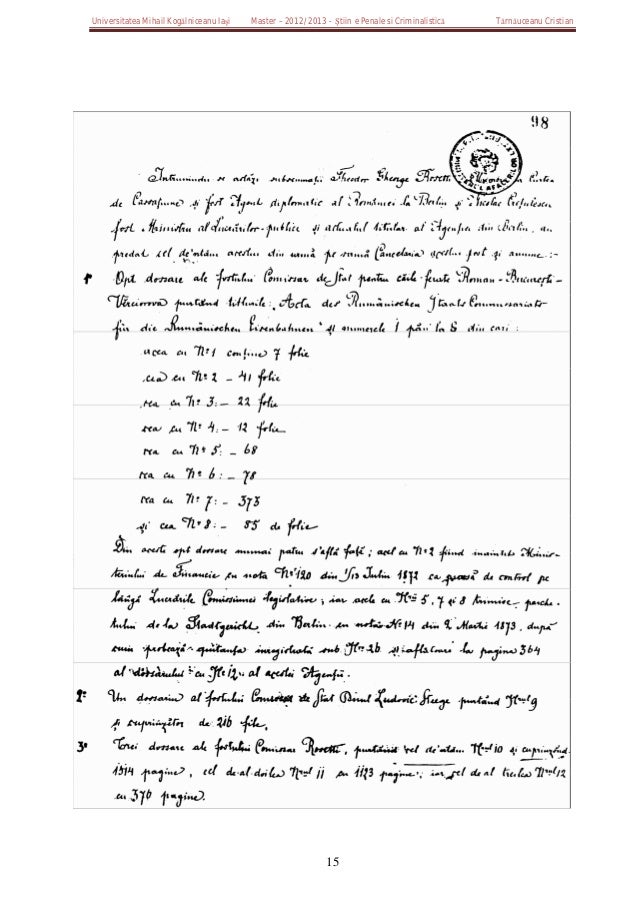 Universitatea Mihail Kogălniceanu Iași Master – 2012/2013 – Științe Penale si Criminalistică Tărnăuceanu Cristian
98
Întrunindu-se astăzi subscrișii Theodor George Rosetti Curtea
de Casațiune și fost Agent diplomatic al României la Berlin și Nicolae Crețulescu
fost Ministru al Lucrărilor publice și actualul titular al Agenției din Berlin, au
predat cel de'ntâiu acestui din urmă pe seamă Cancelaria acestui post și anume :-
1º Opt dossare ale fostului Comisar de Stat pentru căile ferate Roman - Bucuresti -
Verciorova purtând titlurile: „Acta des Rumänischen Staats Commissariats
für die Rumänischen Eisenbahnen" și numerele 1 pân' la 8 din cari :
acea cu Nº 1 conține 7 folie
cea cu Nº 2 – 41 folie
cea cu Nº 3: – 22 folie
cea cu Nº 4: – 12 folie
cea cu Nº 5: – 68
cea cu Nº 6: – 78
cea cu Nº 7: – 373
și cea Nº 8: – 85 de folie
Din aceste opt dossare numai patru s'află față ; acel cu Nº 2 fiind inaintat Minis-
teriului de Financie cu nota Nº 120 din 1/13 Iuliu 1872 ca de control pe
lângă Lucrările Comissiunei legislative ; iar acele cu Nº 5, 7 și 8 trimise parche-
tului de la Stadtgericht din Berlin cu nota Nº 14 din 2 Martie 1873, după
cum probează quitanța inregistrată sub Nº 26 și aflătoare la pagina 364
al dossarului cu Nº 12 al acestei Agenții.
2º Un dossariu al fostului Comisar de Stat Dlnul Ludovic Steege purtând Nº 9
și cuprinzător de 216 file.
3º Trei dossare ale fostului Comisar Rosetti, purtând cel de'ntâiu Nul 10 și cuprinzând
1514 pagine, cel de-al-doilea Nul 11 cu 1123 pagine; iar cel de al treilea Nul 12
cu 376 pagine.
15